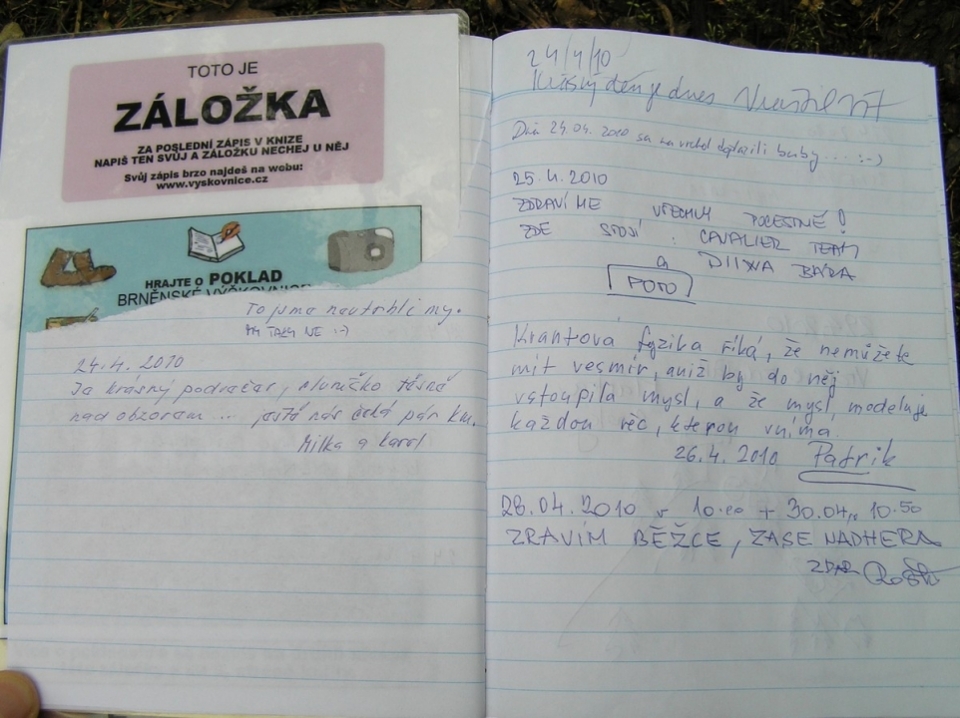 TOTO JE
ZÁLOŽKA
ZA POSLEDNÍ ZÁPIS V KNIZE
NAPIŠ TEN SVŮJ A ZÁLOŽKU NECHEJ U NĚJ
Svůj zápis brzo najdeš na webu:
www.vyskovnice.cz
HRAJTE O POKLAD
BRNĚNSKÉ VÝŠKOVNICE
To jsme neutrhli my.
MY TAKY NE :-)
24.4. 2010
Je krásný podvečer, sluníčko těsně
nad obzorem ... ještě nás čeká pár km.
Milka a Karol
24/4/10
Krásný den je dnes
Dňa 24.04. 2010 sa na vrchol baby ... :-)
25.4.2010
ZDRAVÍME VŠECHNY POCESTNÉ!
ZDE STOJÍ: CAVALIER TEAM
a BÁRA
FOTO
Kvantová fyzika říká, že nemůžete
mít vesmír, aniž by do něj
vstoupila mysl, a že mysl modeluje
každou věc, kterou vnímá.
26.4. 2010 Patrik
28.04.2010 v 10.00 + 30.04. v 10.50
ZRAVÍM BĚŽCE, ZASE NADHERA
ZDAR